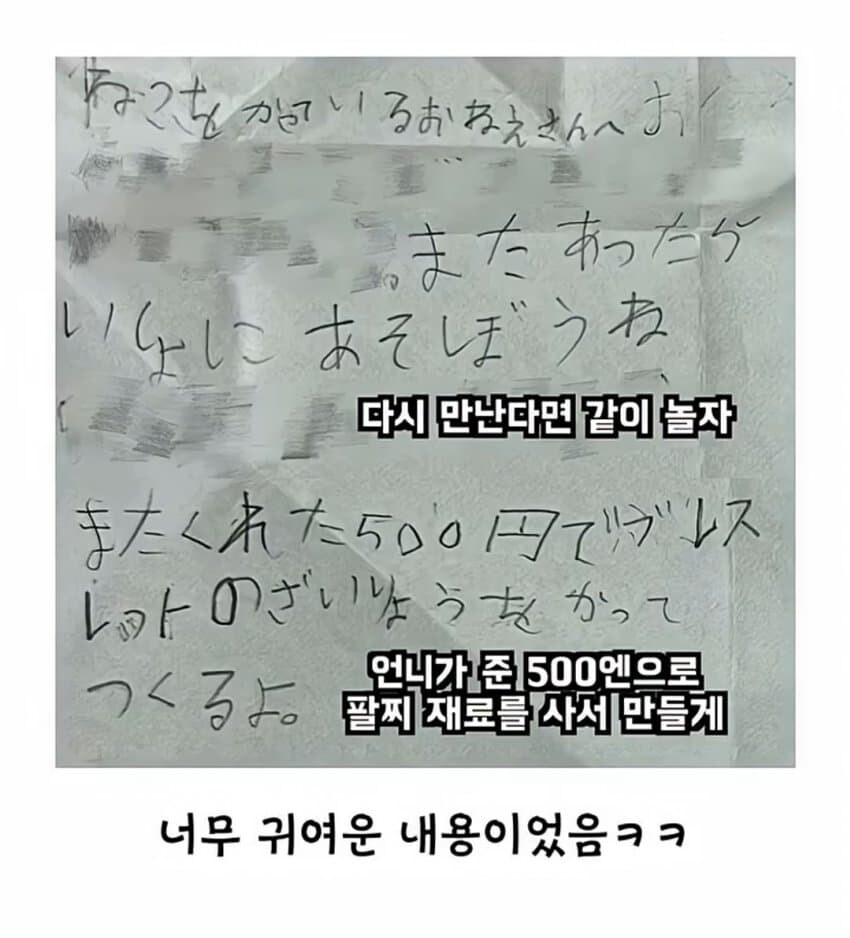 ねこをかっているおねえさんへ
。また あったら
いしょに あそぼうね
다시 만난다면 같이 놀자
またくれた500円でブレス
レットのざいりょうをかって
つくるよ。
언니가 준 500엔으로
팔찌 재료를 사서 만들게
너무 귀여운 내용이었음ㅋㅋ